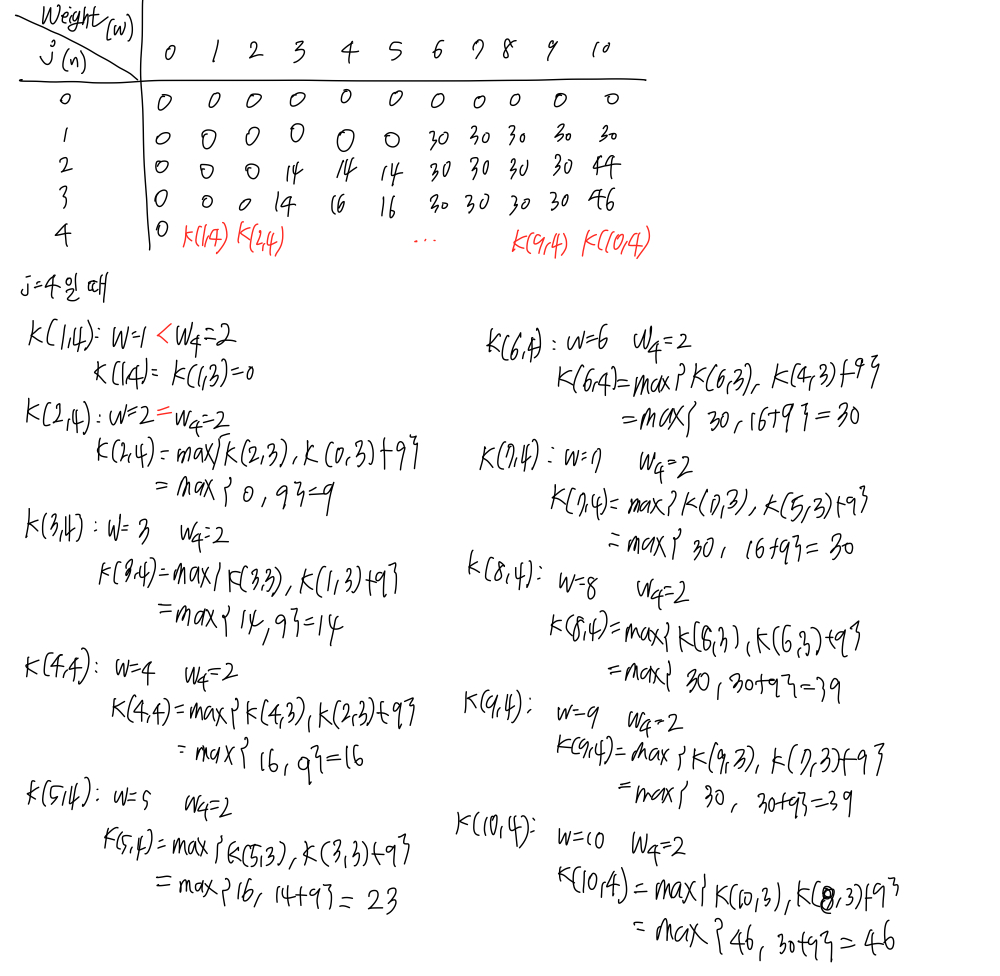 Weight (w)
j (n)
0 1 2 3 4 5 6 7 8 9 10
0 0 0 0 0 0 0 0 0 0 0 0
1 0 0 0 0 0 0 30 30 30 30 30
2 0 0 0 14 14 14 30 30 30 30 44
3 0 0 0 14 16 16 30 30 30 30 46
4 0 K(1,4) K(2,4) ... K(9,4) K(10,4)
j=4일 때
K(1,4): w=1 < w4=2
K(1,4)= K(1,3)=0
K(2,4): w=2 = w4=2
K(2,4)=max{K(2,3), K(0,3)+9}
= max{ 0, 9}=9
K(3,4): w=3 w4=2
K(3,4)=max{K(3,3), K(1,3)+9}
=max{ 14, 9}=14
K(4,4): w=4 w4=2
K(4,4)=max{K(4,3), K(2,3)+9}
= max{ 16, 9}=16
K(5,4): w=5 w4=2
K(5,4)=max{K(5,3), K(3,3)+9}
=max{16, 14+9} = 23
K(6,4): w=6 w4=2
K(6,4)=max{K(6,3), K(4,3)+9}
=max{ 30, 16+9}=30
K(7,4): w=7 w4=2
K(7,4)=max{K(7,3), K(5,3)+9}
=max{ 30, 16+9}= 30
K(8,4): w=8 w4=2
K(8,4)=max{K(8,3), K(6,3)+9}
=max{ 30, 30+9}=39
K(9,4): w=9 w4=2
K(9,4)=max{K(9,3), K(7,3)+9}
=max{ 30, 30+9}=39
K(10,4): w=10 w4=2
K(10,4)=max{K(10,3), K(8,3)+9}
= max{46, 30+9}=46